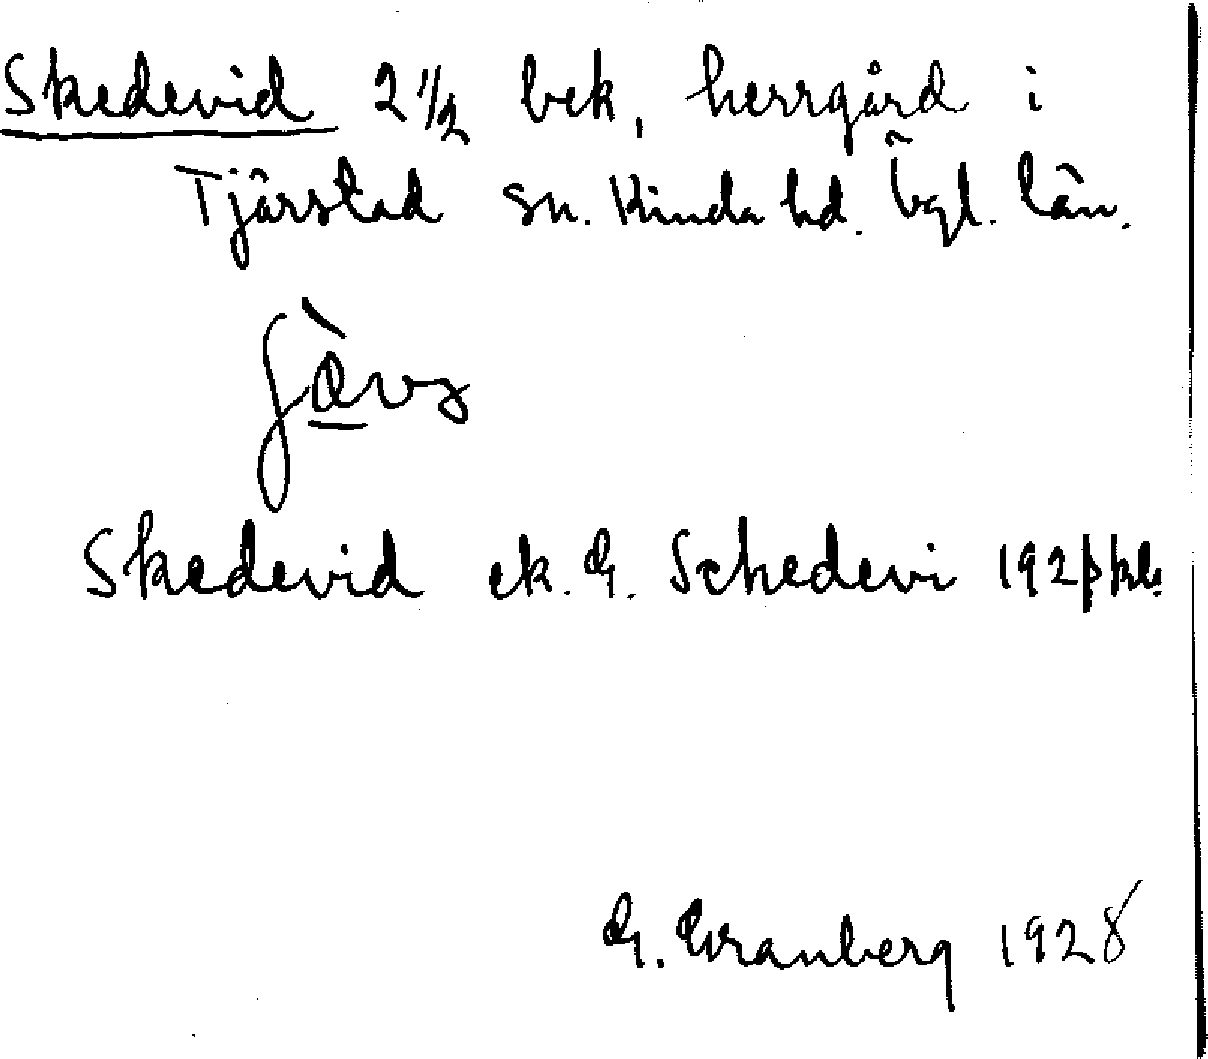 Skedevid 2 1/2 bek, herrgård i
Tjärstad sn. Kinda hd. Ögl. län.
Skedevid ek. G. Schedevi 192
G. Granberg 1928